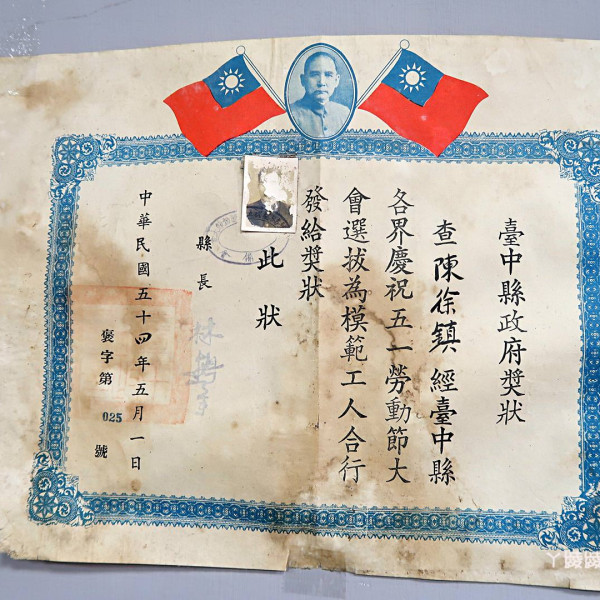 臺中縣政府獎狀
查陳徐鎮經臺中縣
各界慶祝五一勞動節大
會選拔為模範工人合行
發給獎狀
此狀
縣長
中華民國五十四年五月一日
褒字第025號
丫陵陵